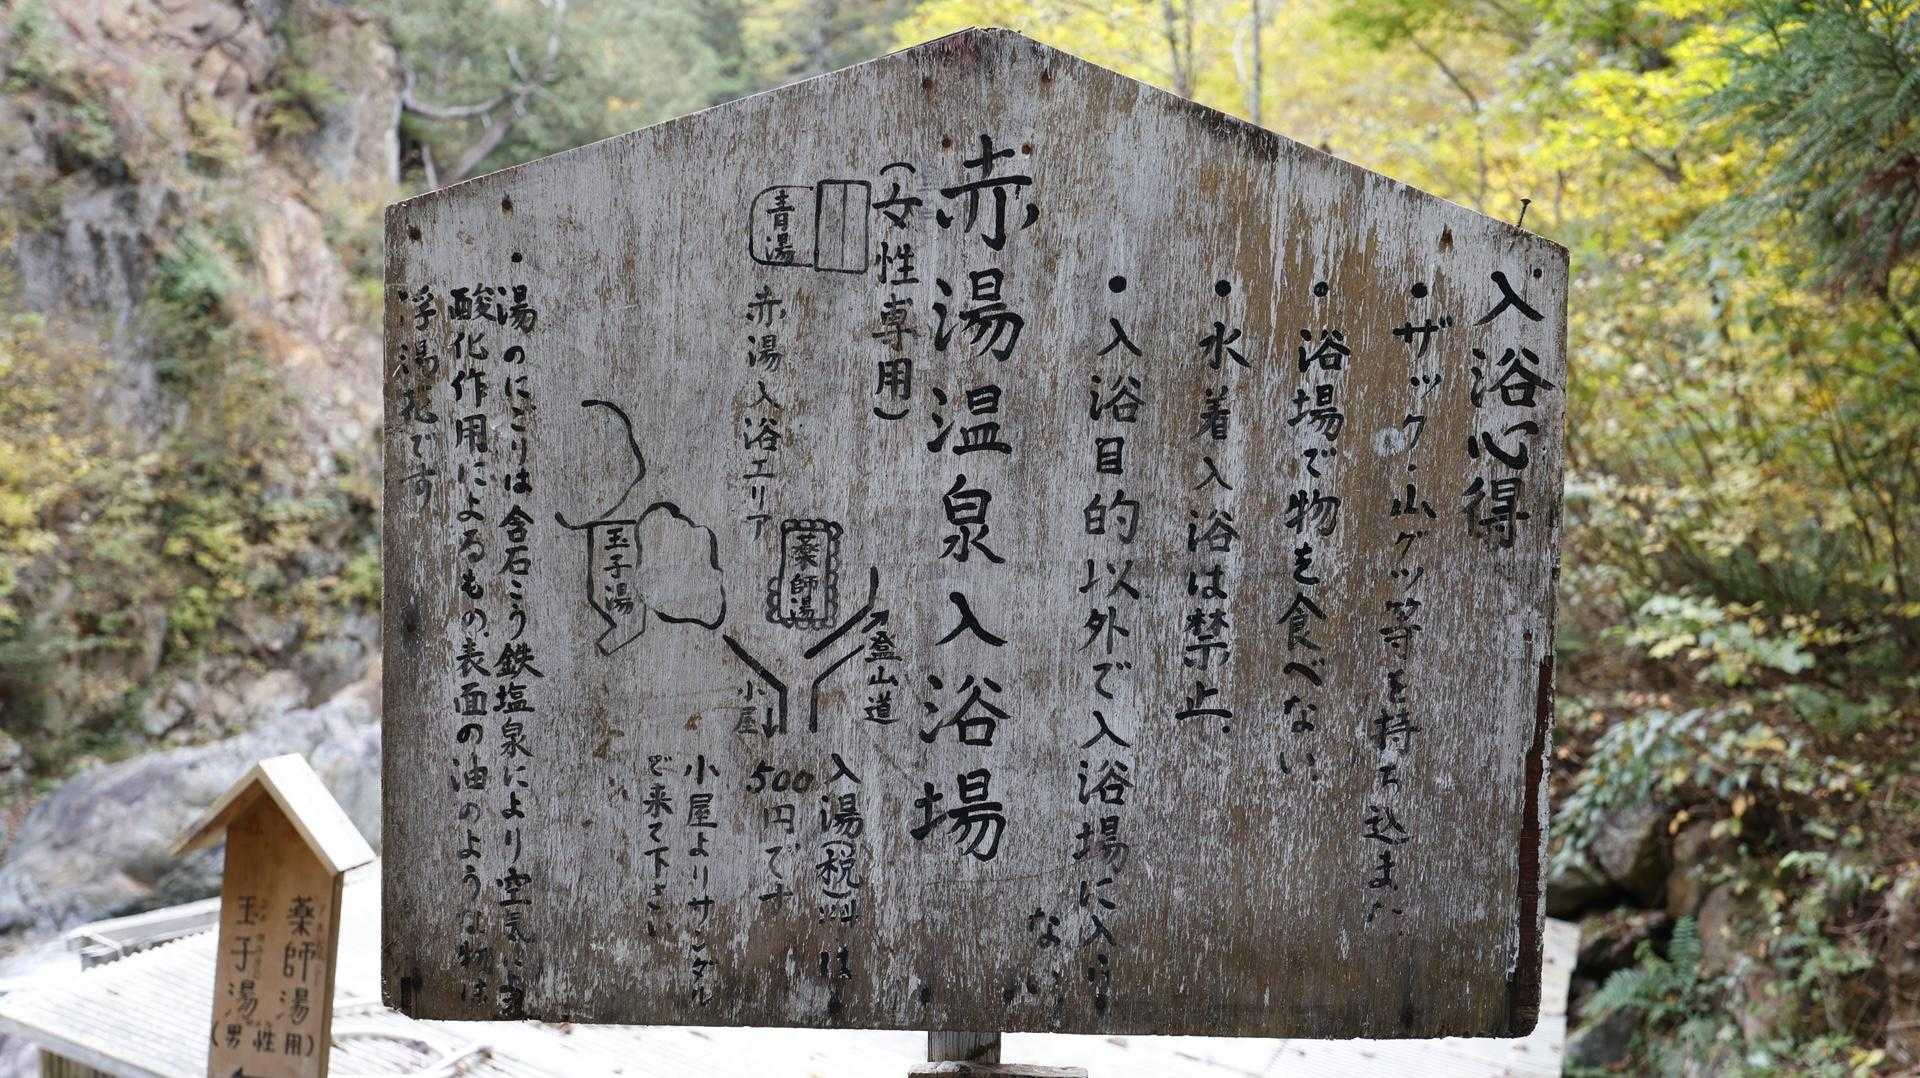 入浴心得
・ザック・山グツ等を持ち込まな
・浴場で物を食べない
・水着入浴は禁止.
・入浴目的以外で入浴場に入ら
ない
赤湯温泉入浴場
(女性専用)
青湯
赤湯入浴エリア
薬師湯
玉子湯
登山道
小屋
入湯(税)料は
500円です
小屋よりサンダル
で来て下さい
・湯のにごりは含石こう鉄塩泉により空気による
酸化作用によるもの.表面の油のような物は
浮湯花です
薬師湯
玉子湯
(男性用)